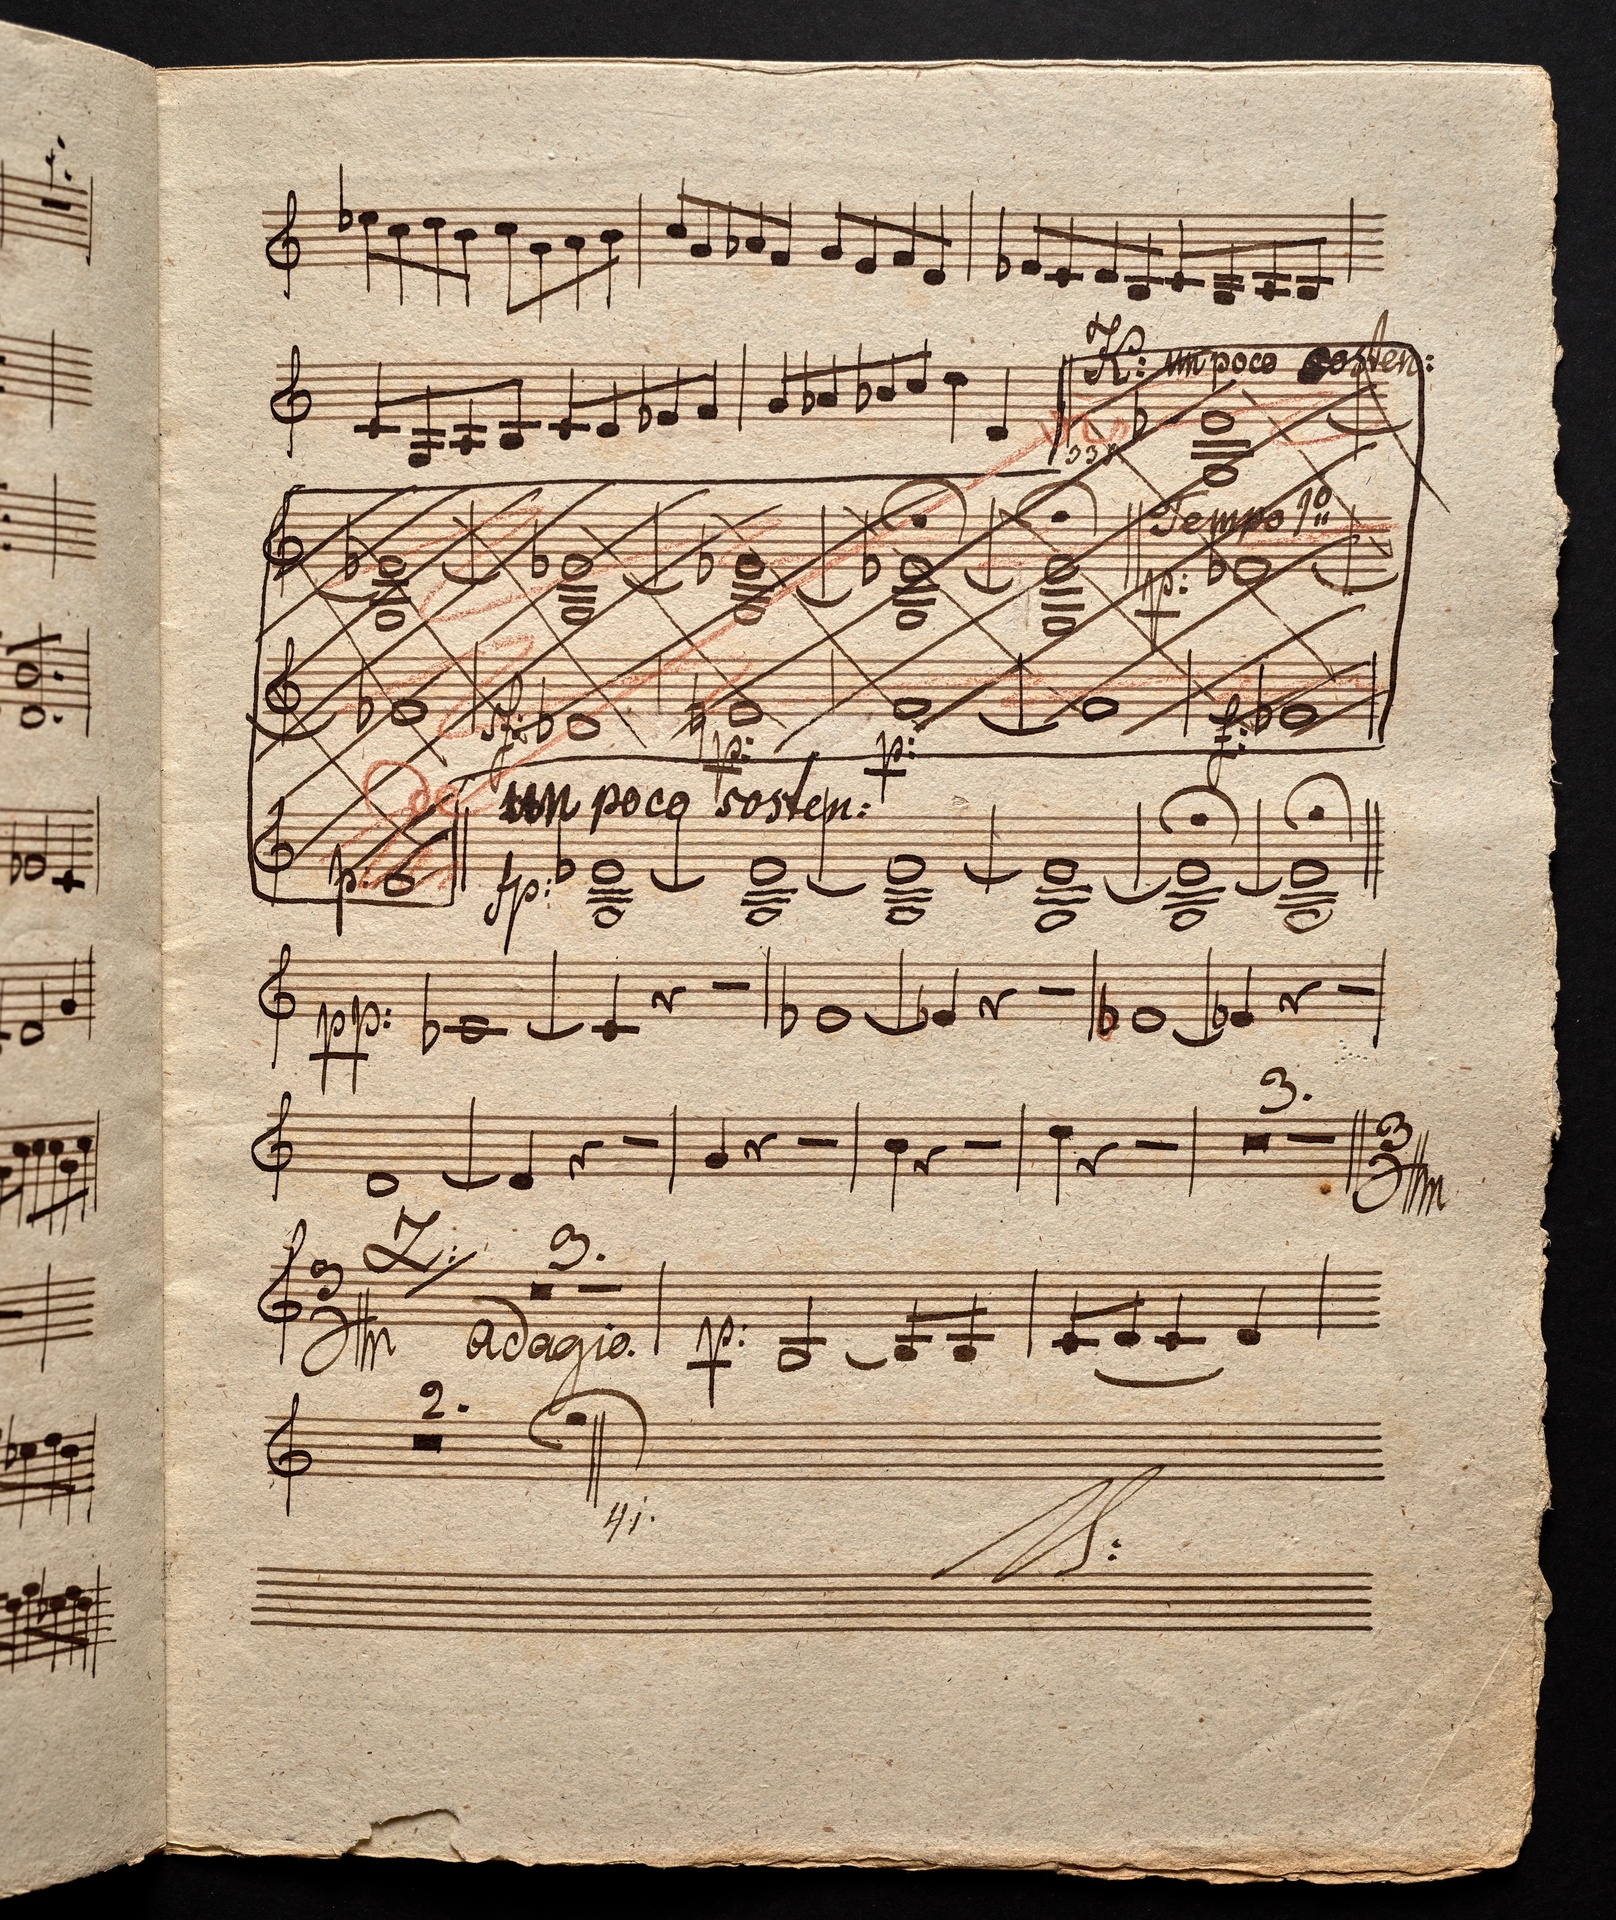 K: un poco sosten:
Tempo 1º
p:
f: p: p: f:
un poco sosten:
p: fp:
pp:
3.
3
Z: 3.
3
adagio. p:
2.
4i.